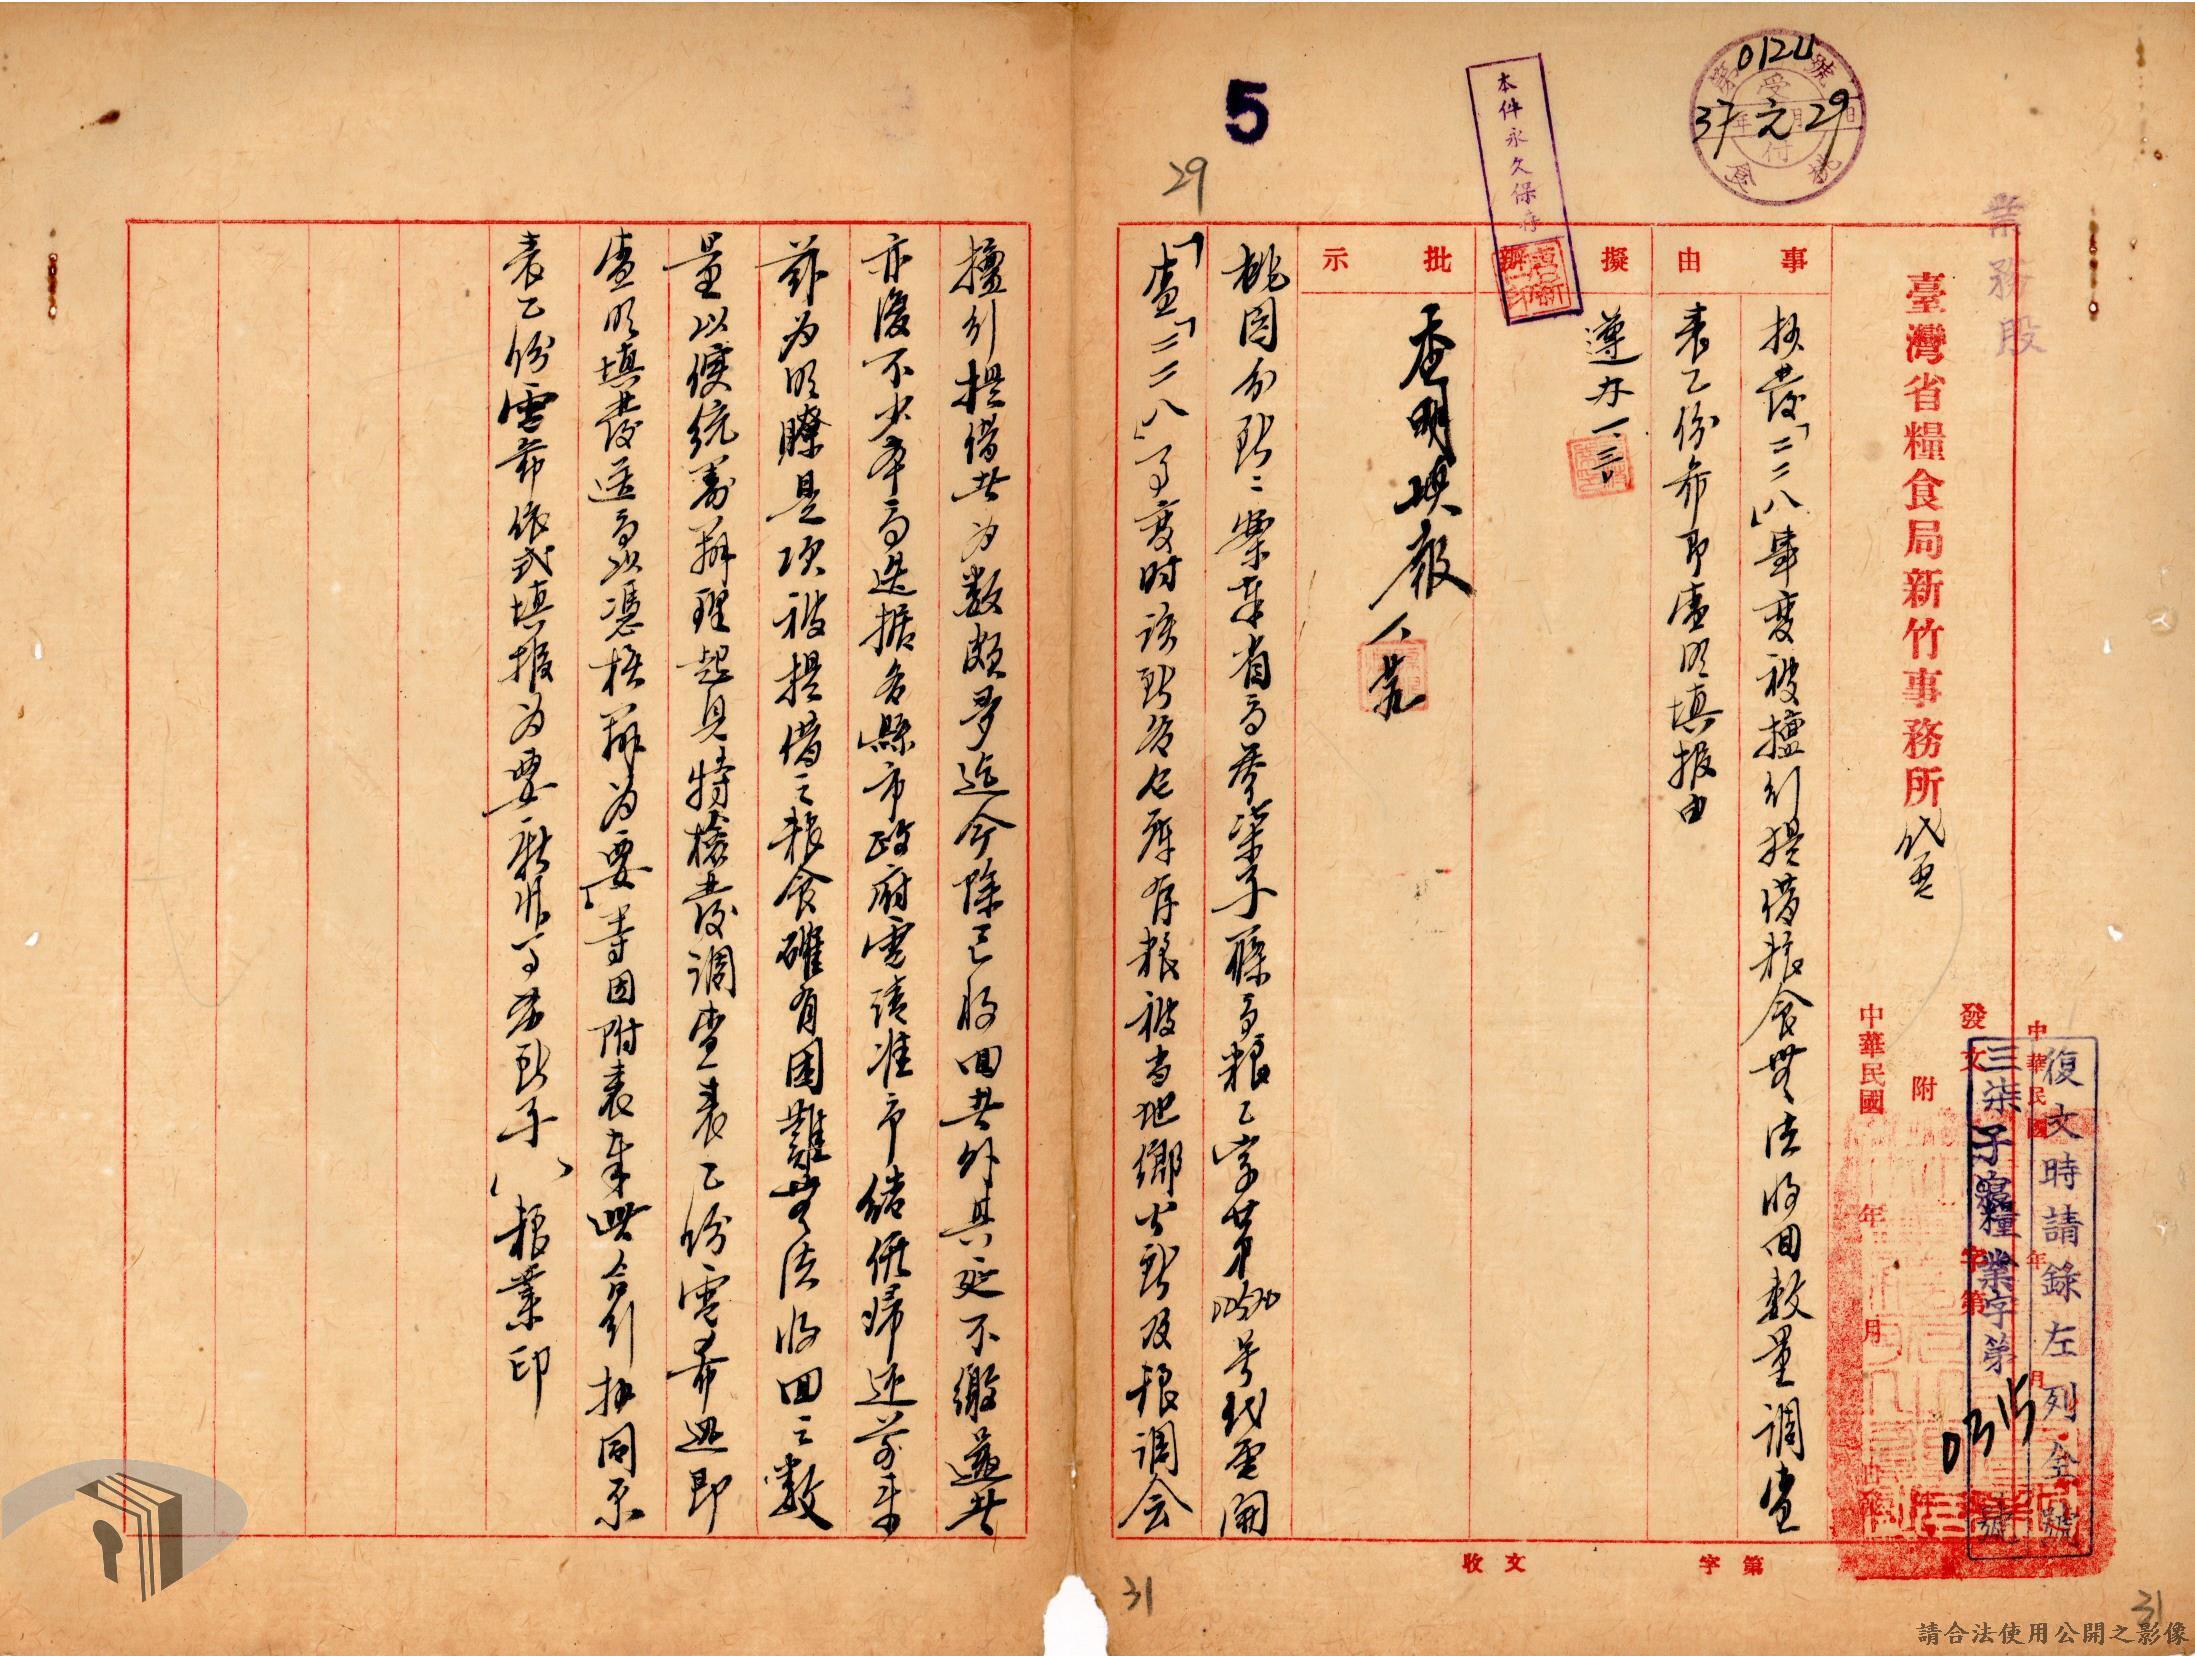 臺灣省糧食局新竹事務所代電
業務股
第0124號
受付
37年元月29日
5
29
本件永久保存
復文時請錄左列全號
三柒子 糧業字第0315號
中華民國 年 月
發文 字第
附
中華民國 年 月 日發
事由
抄發「二二八」事變被擅行提借粮食無法收回數量調查
表乙份希即查明填报由
擬辦
遵办 一、三
批示
查明填報
桃園分所:案奉省局 子 局粮乙字第 号代電開
「查「二二八」事變时該所各仓庫存粮被当地鄉公所及粮調会
擅行提借者为数頗多迄今除已收回者外其延不繳還者
亦復不少本局迭据各縣市政府電請准予 归还前来
茲为明瞭是项被提借之粮食確有困難無法收回之数
量以便統籌辦理起見特檢發調查表乙份電希迅即
查明填發送局以憑核辦为要」等因附表奉此合行抄同原
表乙份電希依式填报为要 新 事務所子 粮業印
收文 字第
31
31
請合法使用公開之影像